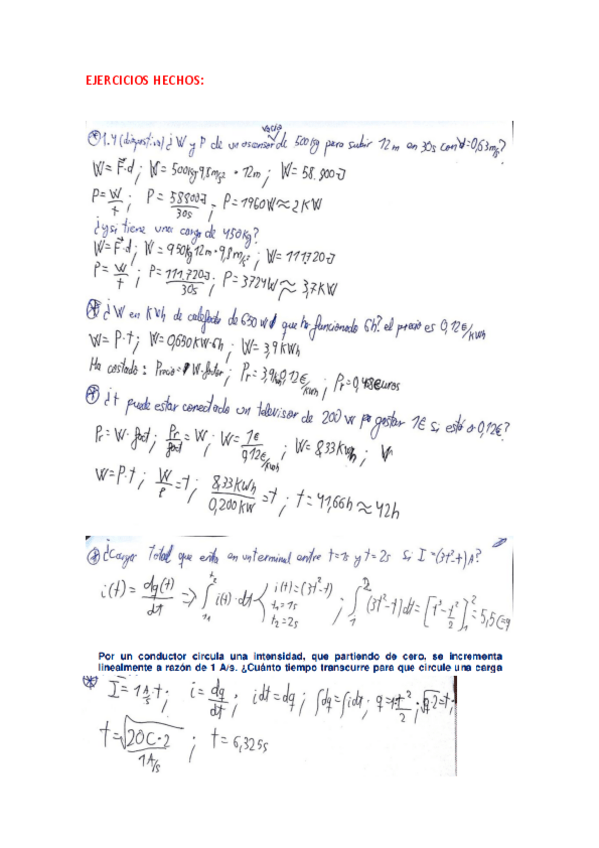 EJERCICIOS HECHOS:
vacío
1.4 (diapositiva) ¿W y P de un ascensor de 500Kg para subir 12m en 30s con v=0,63m/s?
W=F·d; W=500Kg9,8m/s²·12m; W=58.800J
P=W/t; P=58800J/30s; P=1960W≈2KW
¿y si tiene una carga de 450Kg?
W=F·d; W=950Kg12m·9,8m/s²; W=111720J
P=W/t; P=111.720J/30s; P=3724W≈3,7KW
¿W en KWh de de 650W que ha funcionado 6h? el precio es 0,12€/KWh
W=P·t; W=0,650KW·6h; W=3,9KWh
Ha costado: Precio=W·factor; Pr=3,9KWh0,12€/KWh; Pr=0,48€uros
¿t puede estar conectado un televisor de 200W pa gastar 1€ si está a 0,12€?
Pr=W·fact; Pr/fact=W; W=1€/0,12€/KWh; W=8,33KWh;
W=P·t; W/P=t; 8,33KWh/0,200KW=t; t=41,66h≈42h
¿Carga total que entra en un terminal entre t=1s y t=2s si I=(3t²-t)A?
i(t)=dq(t)/dt ⇒ ∫i(t)·dt { i(t)=(3t²-t) t₁=1s t₂=2s ; ∫₁²(3t²-t)dt=[t³-t²/2]₁²=5,5C=q
Por un conductor circula una intensidad, que partiendo de cero, se incrementa
linealmente a razón de 1 A/s. ¿Cuánto tiempo transcurre para que circule una carga
I=1A/s·t; i=dq/dt; idt=dq; ∫dq=∫idt; q=1t²/2; √q·2=t;
t=√20C·2/1A/s; t=6,325s